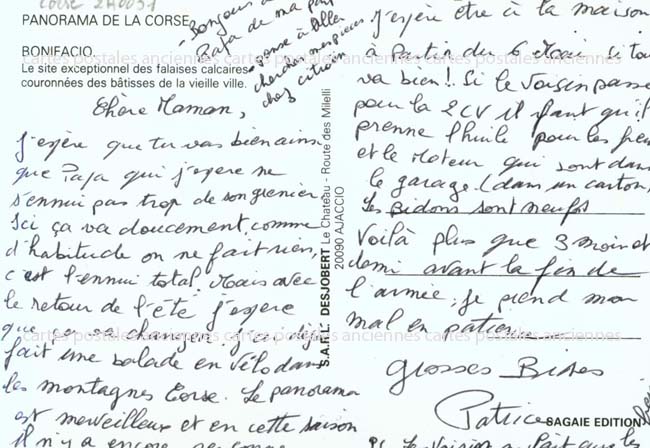 Corse 2A0031
PANORAMA DE LA CORSE
BONIFACIO.
Le site exceptionnel des falaises calcaires
couronnées des bâtisses de la vieille ville.
Bonjour à
Papa de ma part
pense à aller
chercher mes pièces
chez citroën
Chère Maman,
j'espère que tu vas bien ainsi
que Papa qui j'espère ne
s'ennui pas trop de son grenier
Ici ça va doucement, comme
d'habitude on ne fait rien,
c'est l'ennui total. Mais avec
le retour de l'été j'espère
que ça va changer, j'ai déjà
fait une balade en Vélo dans
les montagnes Corse. Le panorama
est merveilleux et en cette saison
il n'y a encore
S.A.R.L. DESJOBERT Le Chateau - Route des Milelli
20090 AJACCIO
j'espère être à la maison
à partir du 6 Mai si tou
va bien! Si le Voisin passe
pour la 2CV il faut qu'il
prenne l'huile pour les frei
et le Moteur qui sont dans
le garage (dans un carton,
les Bidons sont neufs
Voilà plus que 3 mois et
demi avant la fin de
l'armée, je prend mon
mal en patience
Grosses Bises
Patrice
SAGAIE EDITION
PS Le Voisin
cartes postales anciennes cartes postales anciennes cartes postales anciennes
cartes postales anciennes cartes postales anciennes cartes postales anciennes